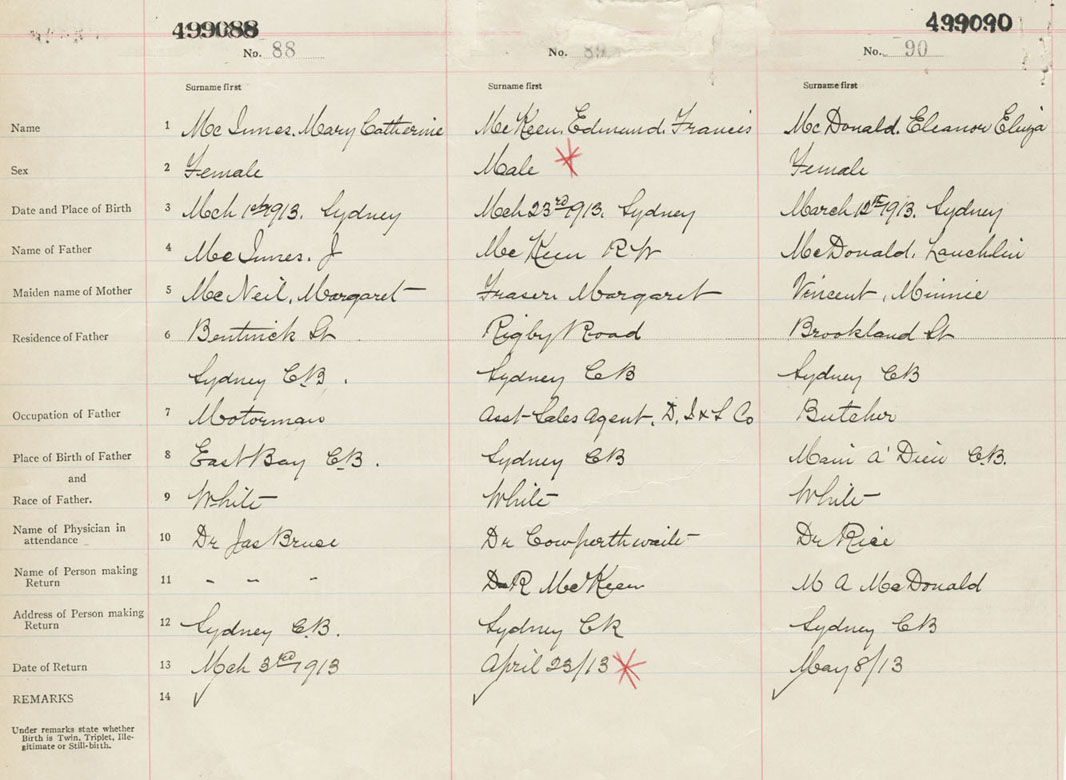 499088
499090
No. 88
No. 89
No. 90
Surname first
Surname first
Surname first
Name 1 Mc Innes, Mary Catherine
Mc Keen, Edmund, Francis
Mc Donald, Eleanor Eliza
Sex 2 Female
Male
Female
Date and Place of Birth 3 Mch 1st 1913. Sydney
Mch 23rd 1913. Sydney
March 12th 1913. Sydney
Name of Father 4 Mc Innes. J
Mc Keen R W
McDonald, Lauchlin
Maiden name of Mother 5 Mc Neil, Margaret
Fraser, Margaret
Vincent, Minnie
Residence of Father 6 Bentinck St
Rigby Road
Brookland St
Sydney C.B.
Sydney CB
Sydney CB
Occupation of Father 7 Motorman
Asst Sales Agent, D, I & S Co
Butcher
Place of Birth of Father 8 East Bay C.B.
Sydney CB
Main A' Dieu C.B.
and
Race of Father. 9 White
White
White
Name of Physician in
attendance 10 Dr Jas Bruce
Dr Cowperthwaite
Dr Rice
Name of Person making
Return 11 " " "
R McKeen
M A McDonald
Address of Person making
Return 12 Sydney C.B.
Sydney CB
Sydney CB
Date of Return 13 Mch 3rd 1913
April 23/13
May 8/13
REMARKS 14
Under remarks state whether
Birth is Twin, Triplet, Ille-
gitimate or Still-birth.